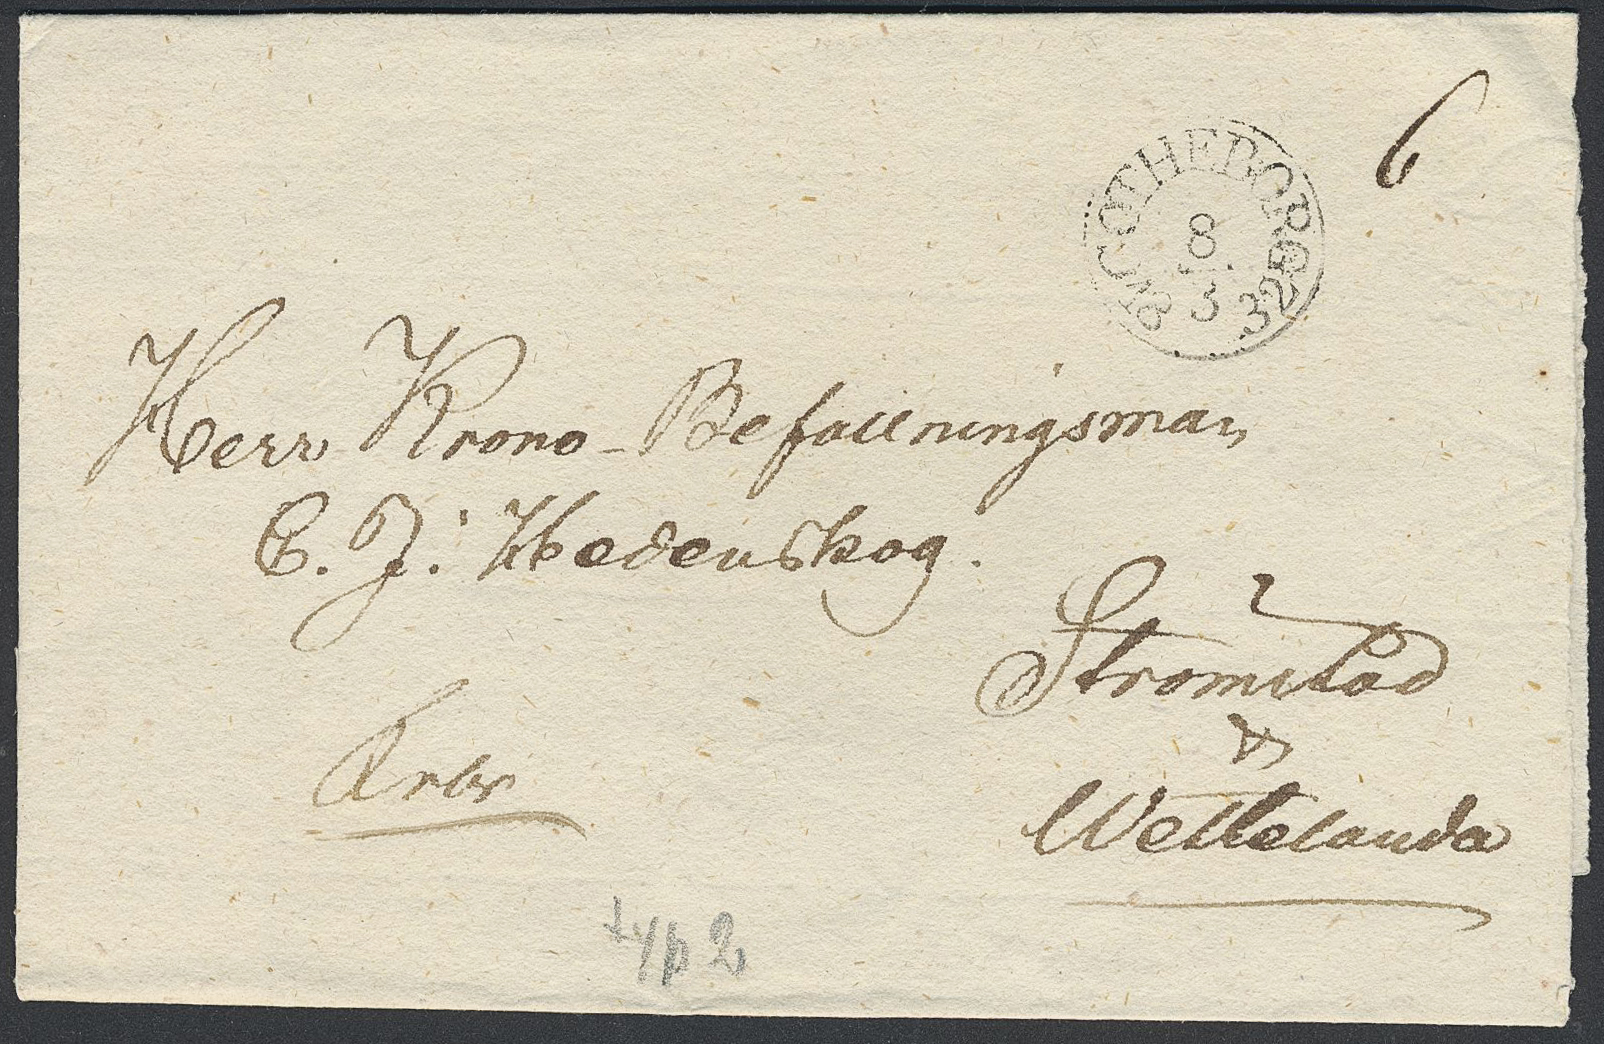 6
GÖTHEBORG
8
3
Herr Krono-Befallningsman
C. J. Hedenskog.
Strömstad
&
Wettelanda
typ 2